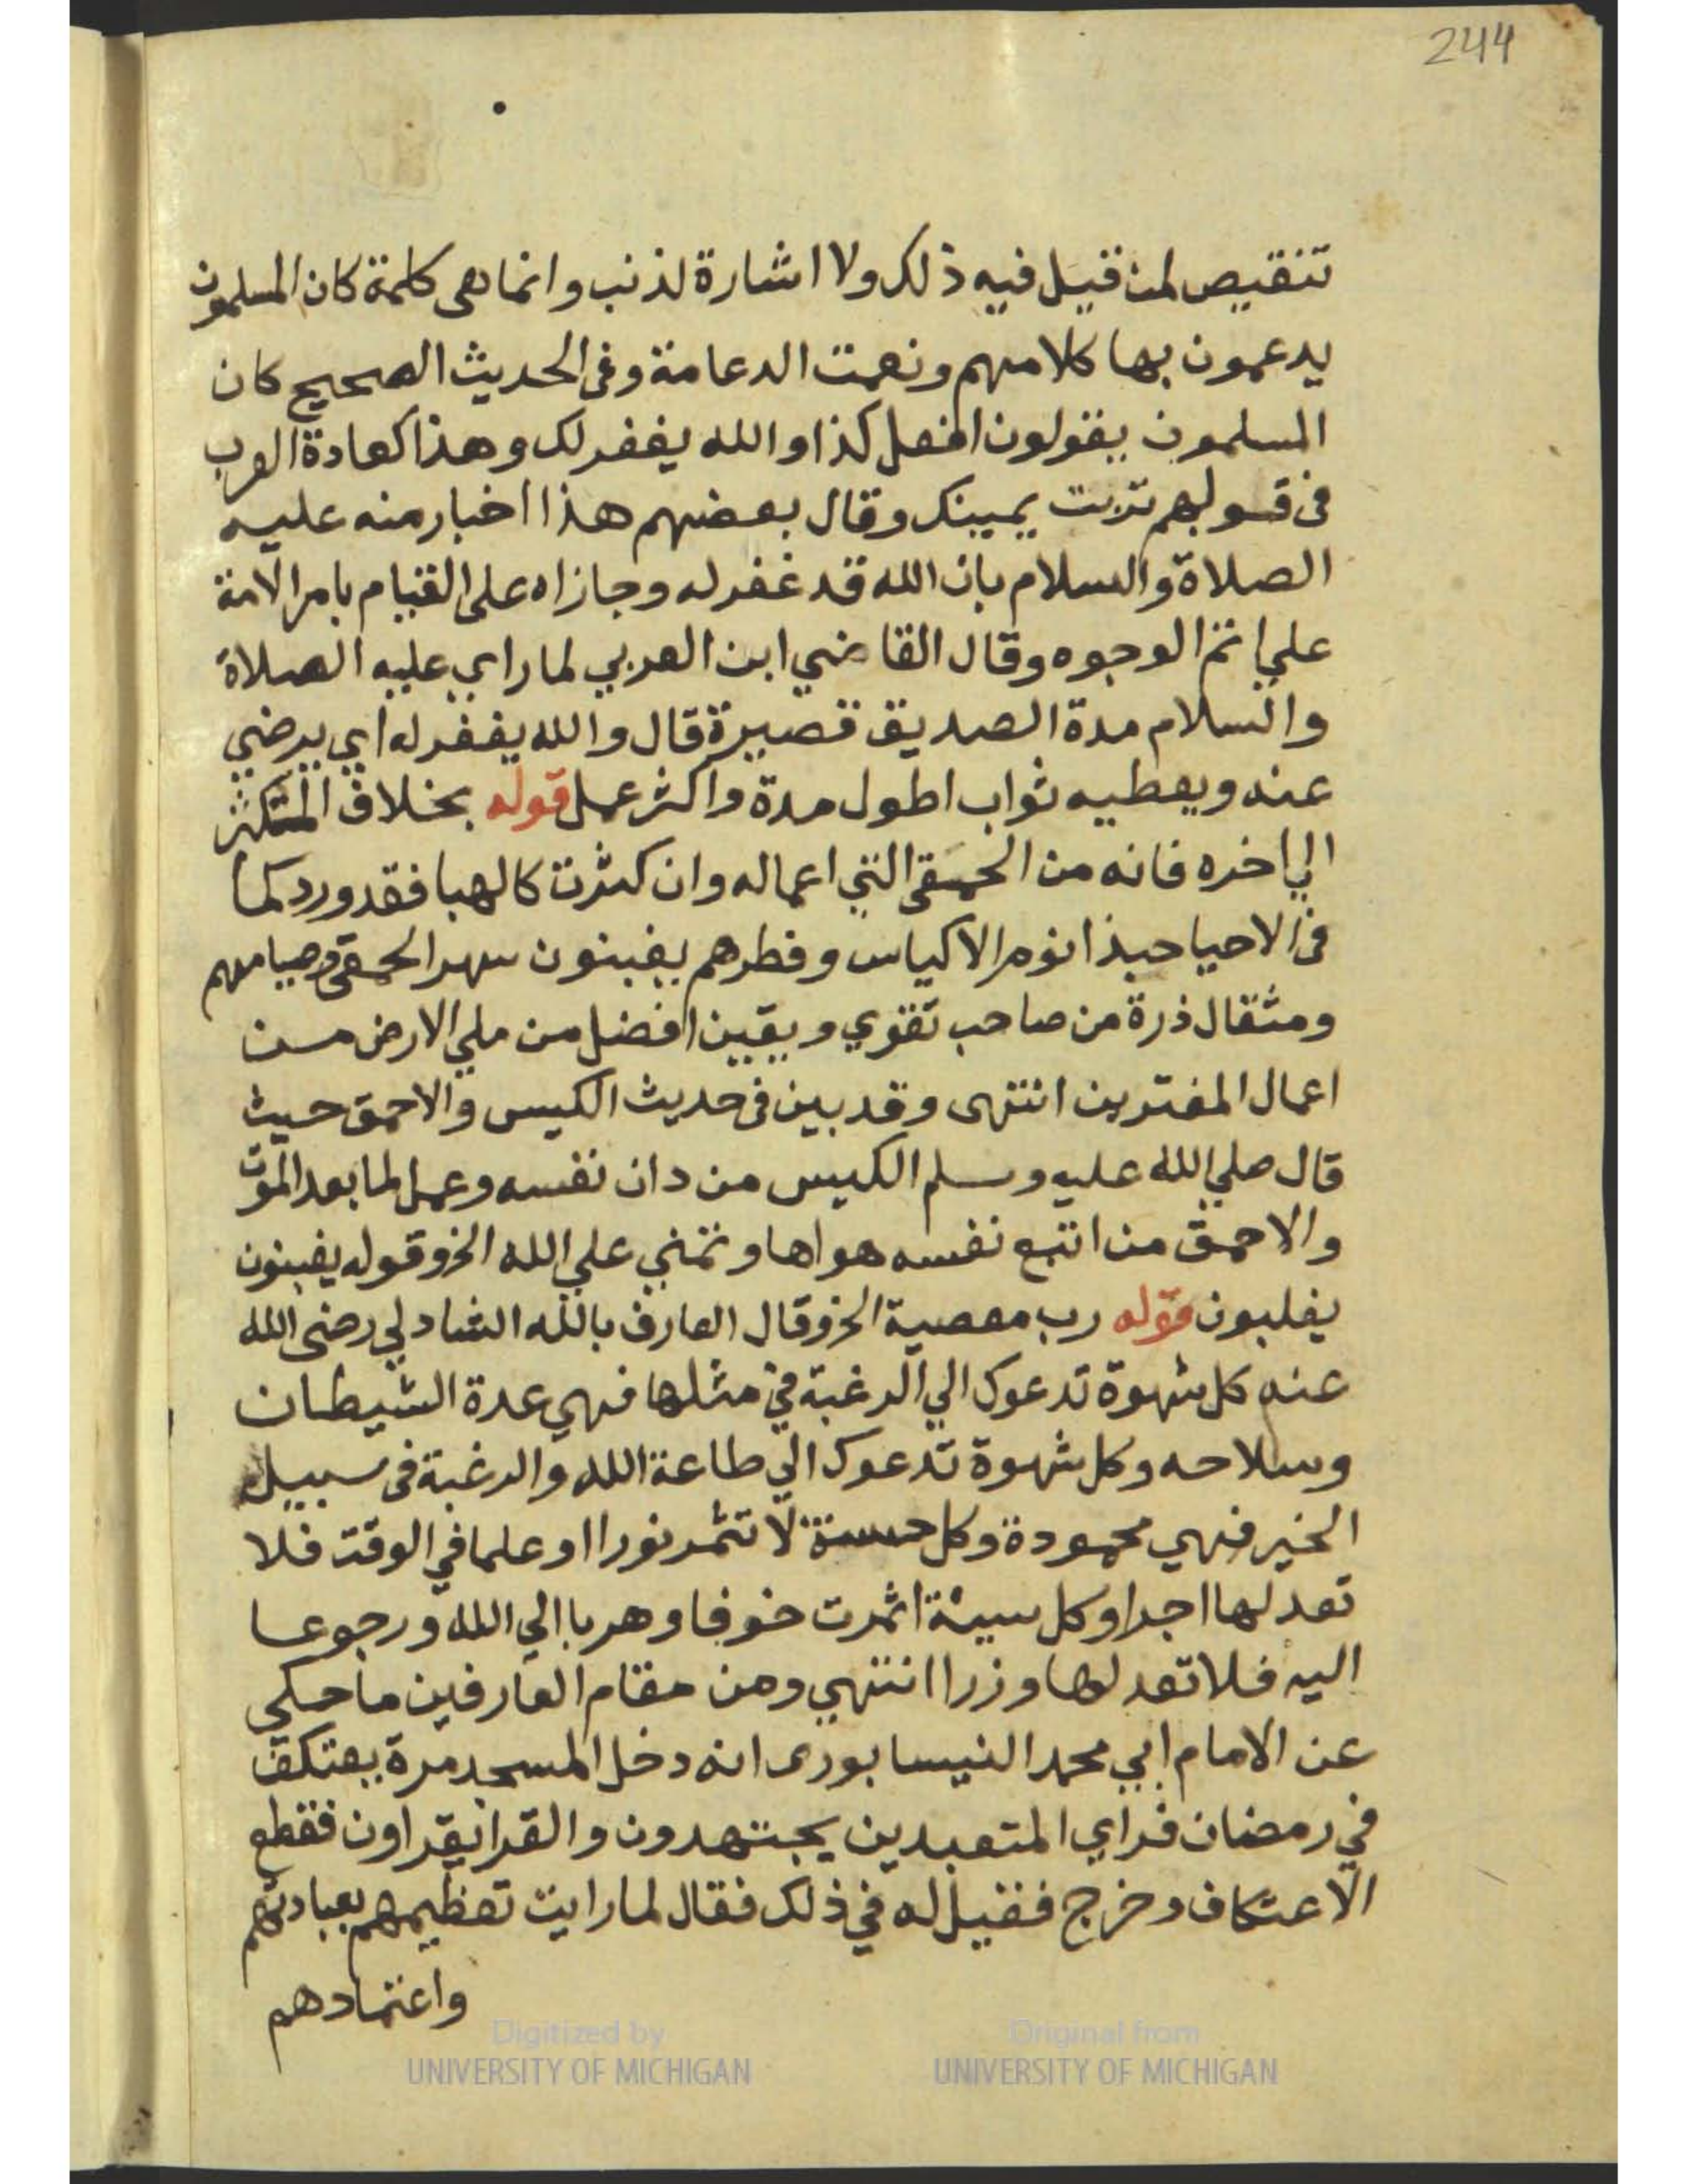 244
تنقيص لمن قيل فيه ذلك ولا اشارة لذنب وانما هى كلمة كان المسلمون
يدعمون بها كلامهم ونعمت الدعامة وفى الحديث الصحيح كان
المسلمون يقولون افعل كذا والله يغفر لك وهذا كعادة العرب
فى قولهم تربت يمينك وقال بعضهم هذا اخبار منه عليه
الصلاة والسلام بان الله قد غفر له وجازاه على القيام بامر الامة
علي اتم الوجوه وقال القاضي ابن العربي لما راي عليه الصلاة
والسلام مدة الصديق قصيرة قال والله يغفر له اي يرضي
عنه ويعطيه ثواب اطول مدة واكثر عمل قوله بخلاف المتكثر
الي اخره فانه من الحمقى التي اعماله وان كثرت كالهبا فقد ورد كما
فى الاحيا حبذا نوم الاكياس وفطرهم يغبنون سهر الحمقى وصيامهم
ومثقال ذرة من صاحب تقوي ويقين افضل من ملي الارض من
اعمال المغترين انتهى وقد بين فى حديث الكيس والاحمق حيث
قال صلي الله عليه وسلم الكيس من دان نفسه وعمل لما بعد الموت
والاحمق من اتبع نفسه هواها وتمني علي الله الخ وقوله يغبنون
يغلبون قوله رب معصية الخ وقال العارف بالله الشادلي رضى الله
عنه كل شهوة تدعوك الي الرغبة في مثلها فهي عدة الشيطان
وسلاحه وكل شهوة تدعوك الي طاعة الله والرغبة فى سبيل
الخير فهي محمودة وكل حسنة لا تثمر نورا او علما في الوقت فلا
تعد لها اجرا وكل سيئة اثمرت خوفا وهربا الي الله ورجوعا
اليه فلا تعد لها وزرا انتهي ومن مقام العارفين ما حكي
عن الامام ابي محمد النيسابورى انه دخل المسجد مرة يعتكف
في رمضان فراي المتعبدين يجتهدون والقرا يقراون فقطع
الاعتكاف وخرج فقيل له في ذلك فقال لما رايت تعظيمهم بعبادتهم
واعتمادهم
Digitized by UNIVERSITY OF MICHIGAN
Original from UNIVERSITY OF MICHIGAN